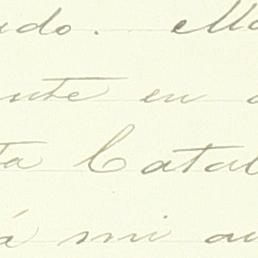 udo. Ma
nte en a
ta Catal
á mi au